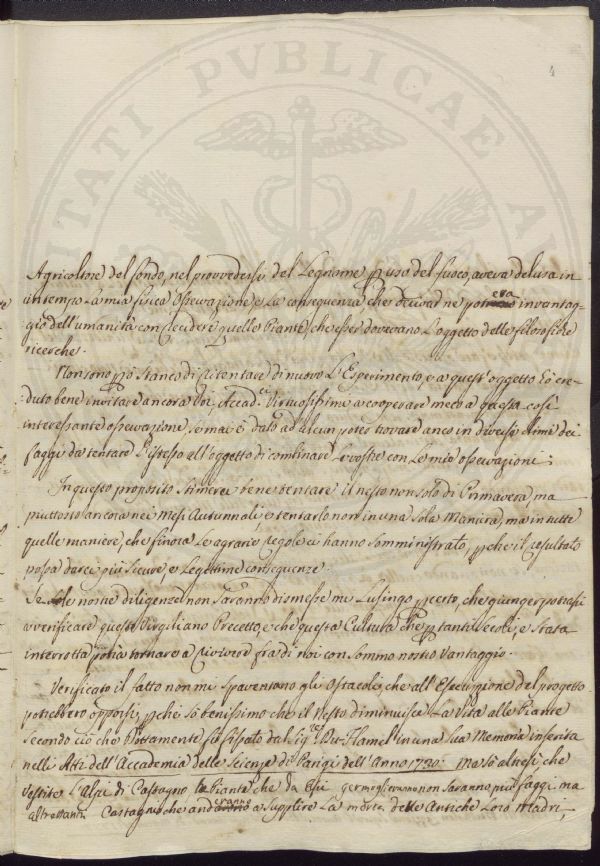 4
Agricoltore del fondo, nel provvedersi del Legname p uso del fuoco, aveva delusa in
un tempo la mia fisica Osservazione, e La conseguenza, che ne era in vantag-
gio dell'umanità con Recidere quelle Piante, che esser dovevano L'oggetto delle filosofiche
ricerche.
Non sono però Stanco di ritentare di nuovo L'Esperimento, e a quest'oggetto hò cre-
:duto bene invitare ancora Voi Accad.ci Virtuosissimi a cooperare meco a questa così
interessante osservazione, se mai è dato ad alcun poter trovare anco in diverso clima dei
faggi da tentare L'istesso all'oggetto di combinare le vostre con le mie osservazioni;
In questo proposito Stimerei bene tentare il nesto non solo di Primavera, ma
piuttosto ancora nei Mesi Autunnali, e tentarlo non in una Sola Maniera, ma in tutte
quelle maniere, che finora le agrarie regole ci hanno Somministrato, pche il resultato
possa darci più Sicure, e Legittime conseguenze.
Se le nostre diligenze non Saranno dismesse mi Lusingo p certo, che giunger potrassi
a verificare questo Virgiliano Precetto, e che questa Cultura che p tanti Secoli è Stata
interrotta potrà tornare a rivivere frà di noi con Sommo nostro Vantaggio.
Verificato il fatto non mi Spaventano gli Ostacoli, che all'Esecuzione del progetto
potrebbero opporsi, pche sò benissimo che il Nesto diminuisce La Vita alle Piante
Secondo ciò che Dottamente fù fissato dal Sig.re Du-Hamel in una Sua Memoria inserita
nelli Atti dell'Accademia delle Scienze di Parigi dell'Anno 1730: ma sò altresì che
Vestite L'Alpi di Castagno le Piante che da Essi germoglieranno non Saranno più faggi ma
altrettanti Castagni che anderanno a Supplire La morte delle Antiche Loro Madri,
VTITATI PVBLICAE